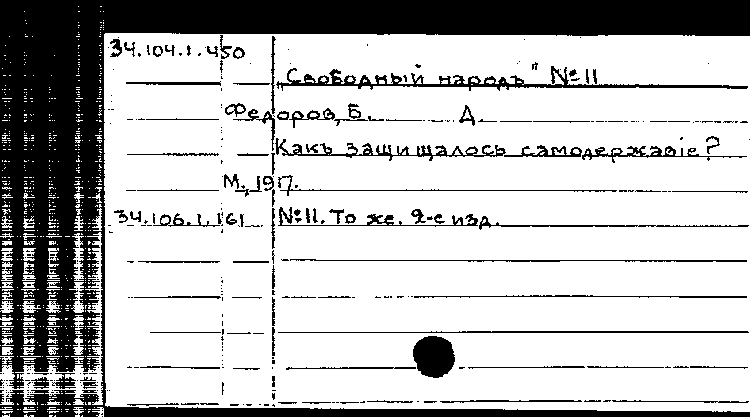 34.104.1.450
„Свободный народъ" №11
Федоров, Б. Д.
Какъ защищалось самодержавіе?
М., 1917.
34.106.1.161 №11. То же. 2-е изд.